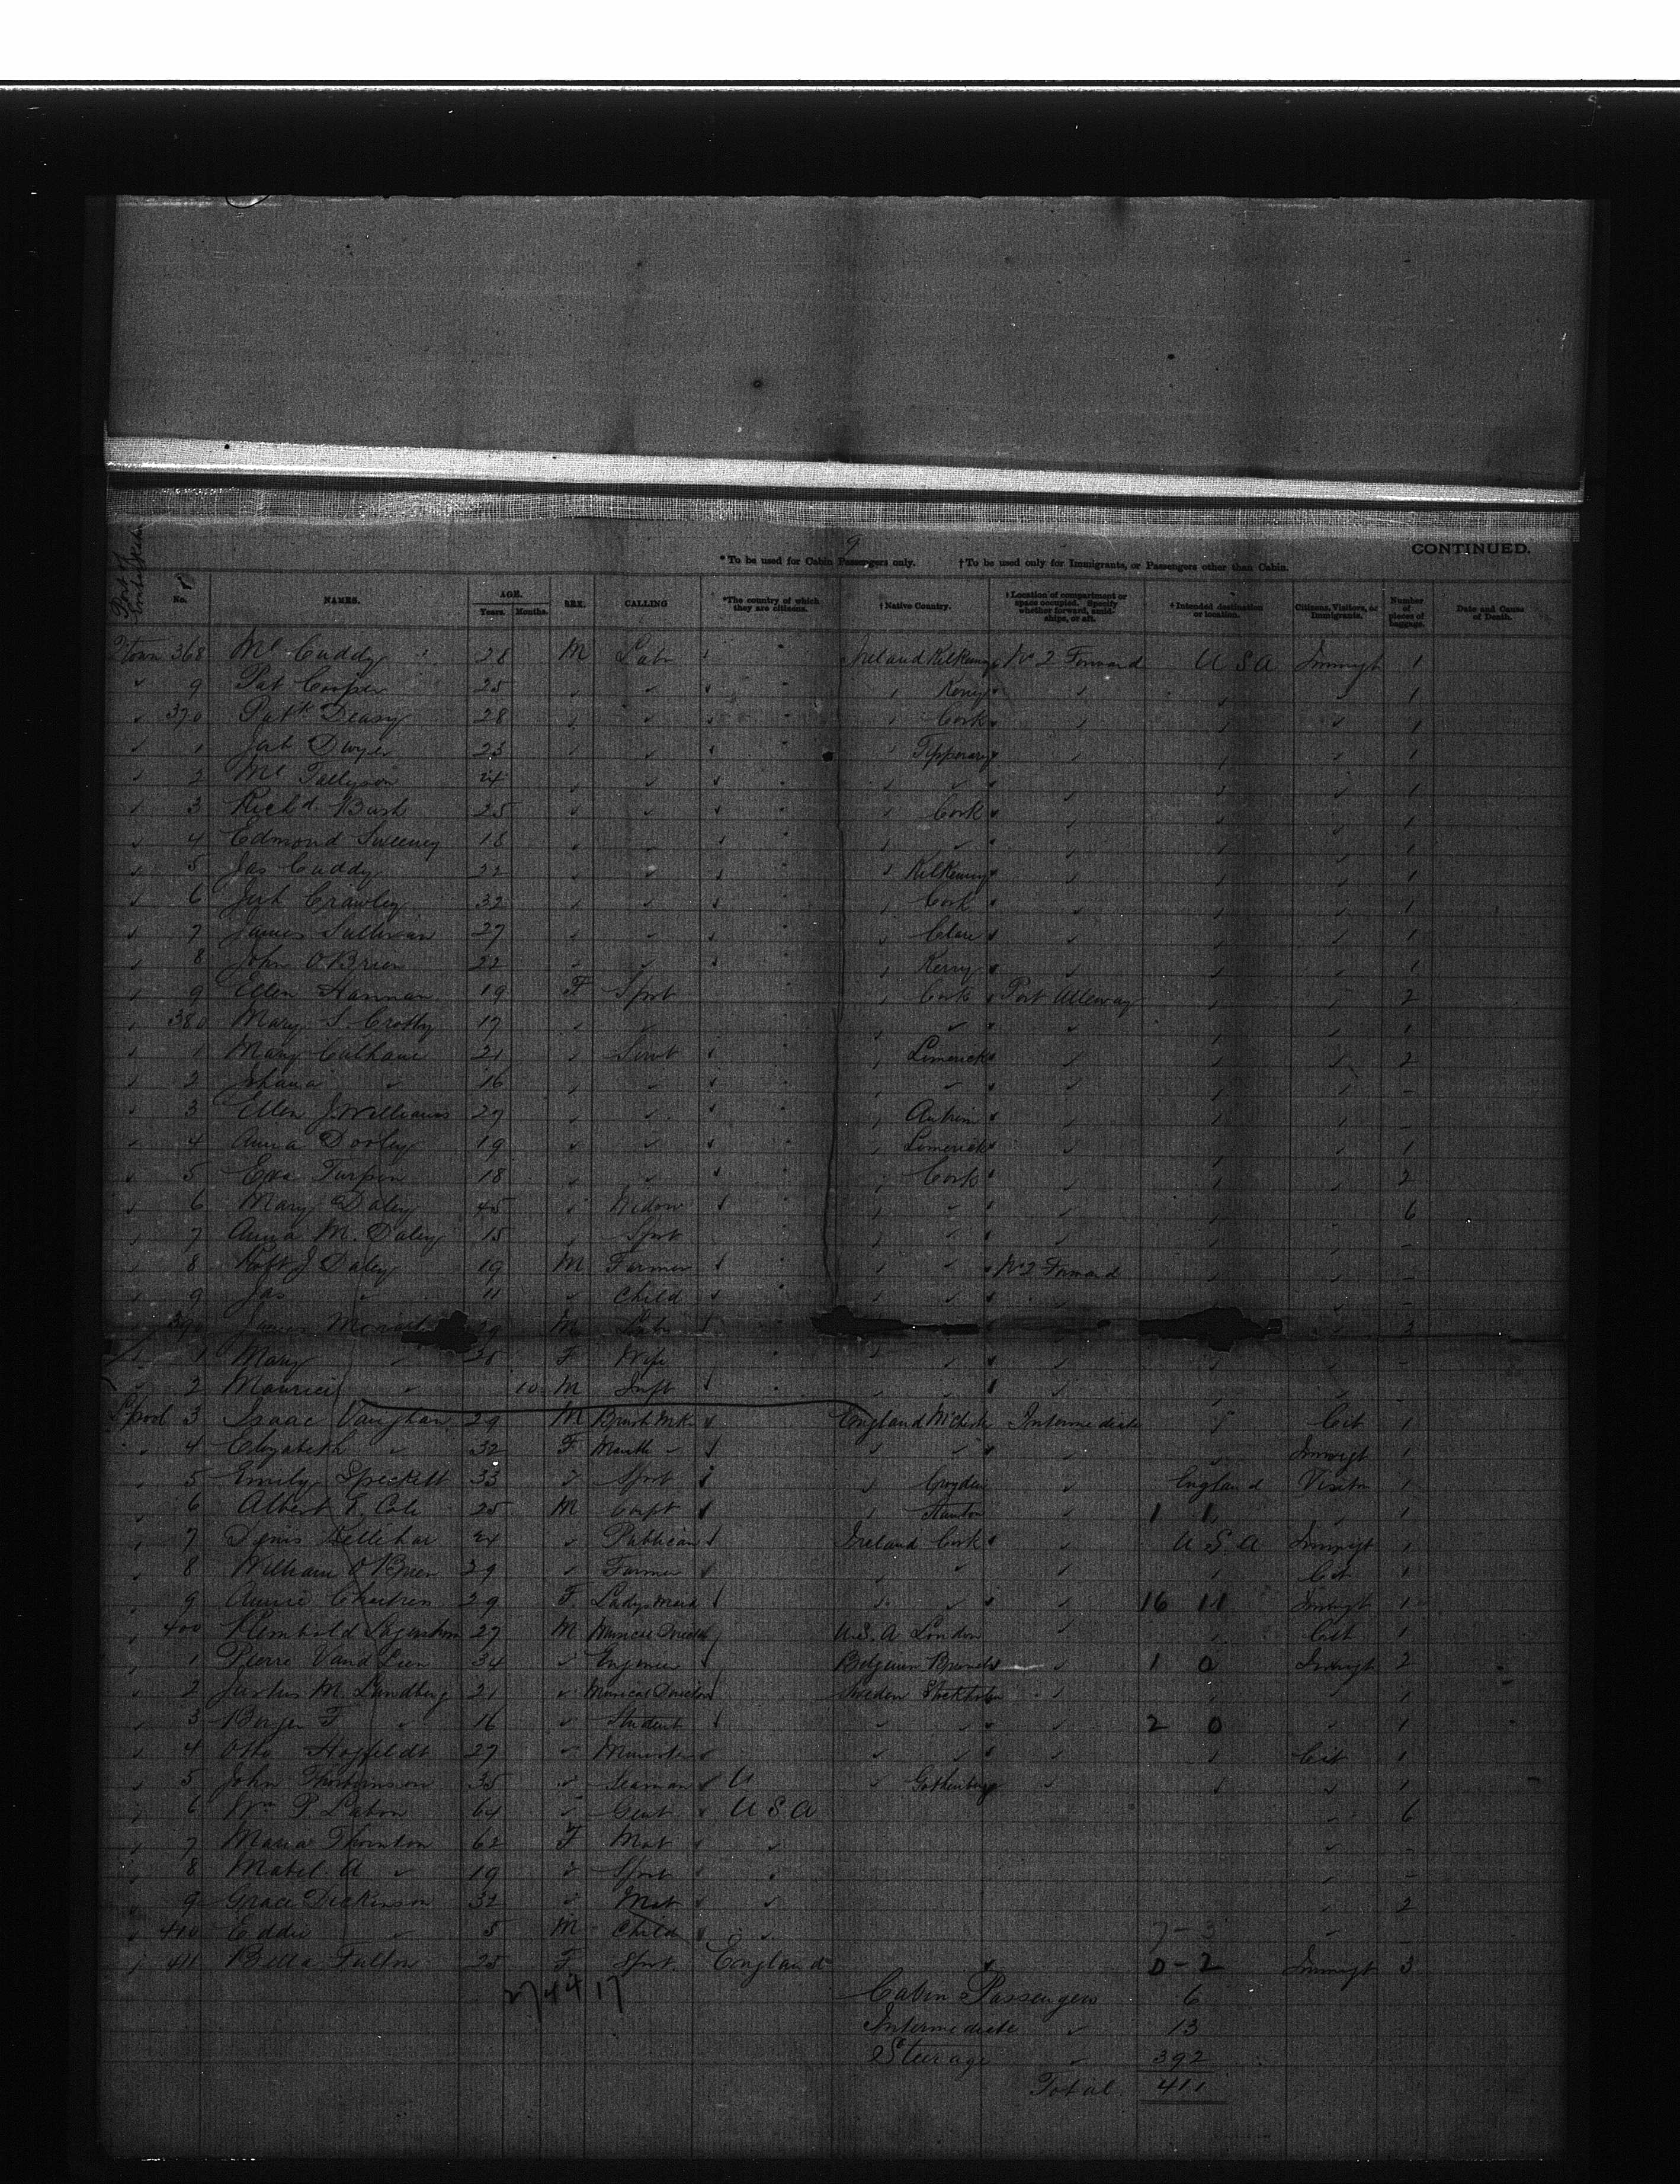 9
CONTINUED.
* To be used for Cabin Passengers only. † To be used only for Immigrants, or Passengers other than Cabin.
Port of Embarkation No. NAMES. AGE. Years. Months. SEX. CALLING *The country of which they are citizens. † Native Country. † Location of compartment or space occupied. Specify whether forward, amidships, or aft. † Intended destination or location. Citizens, Visitors, or Immigrants. Number of pieces of baggage. Date and Cause of Death.
Q'town 368 Ml Cuddy 28 M Labr Ireland Kilkenny No 2 Forward U S A Immigt 1
9 Pat Cooper 25 Kerry 1
370 Patk Deasy 28 Cork 1
1 Jerh Dwyer 23 Tipperary 1
2 Ml 24 1
3 Richd Bush 25 Cork 1
4 Edmond Sweeney 18 1
5 Jas Cuddy 22 Kilkenny 1
6 Jerh Crawley 32 Cork 1
7 James Sullivan 27 Clare 1
8 John O'Brien 22 Kerry 1
9 Ellen Hannan 19 F Spst Cork Port Alleway 2
380 Mary S. Crotty 17 1
1 Mary Culhane 21 Servt Limerick 2
2 Johana 16 -
3 Ellen J. Williams 27 Antrim 1
4 Anna Dooley 19 Limerick 1
5 Eva Turpin 18 Cork 2
6 Mary Daley 45 Widow 6
7 Anna M. Daley 15 Spst -
8 Robt J Daley 19 M Farmer No 2 Forward -
9 Jas 11 Child -
390 James 29 M Labr 3
1 Mary F Wife -
2 Maurice 10 M Inft
L'pool 3 Isaac Vaughan 29 M Brush Mkr England Intermediate Cit 1
4 Elizabeth 32 F Immigt 1
5 Emily Spickett 33 Spst Croyden England Visitor 1
6 Albert T. Cole 25 M Carpt 1 1 1
7 Dynis Kellehar 24 Publican Ireland Cork U S A Immigt 1
8 William O'Brien 29 Farmer Cit 1
9 Annie 29 F. Ladys Maid 16 11 Immigt 1
400 27 M U.S.A London Cit 1
1 Pierre 34 Engineer Belgium Brussels 1 0 Immigt 2
2 Justus M. Lundberg 21 Musical Director Sweden Stockholm 1
3 Birger F. 16 Student 2 0 1
4 Otto Hogfeldt 27 Minister Cit 1
5 John 35 Seaman U Gothenburg 1
6 Wm P. 64 Gent U S A 6
7 Maria Thornton 62 F Mat -
8 Mabel A 19 Spst -
9 Grace Dickinson 32 Mat 2
410 Eddie 5 M Child 7-3
411 Bella Fulton 25 F Spst. England 0-2 Immigt 3
Cabin Passengers 6
Intermediate 13
Steerage 392
Total 411